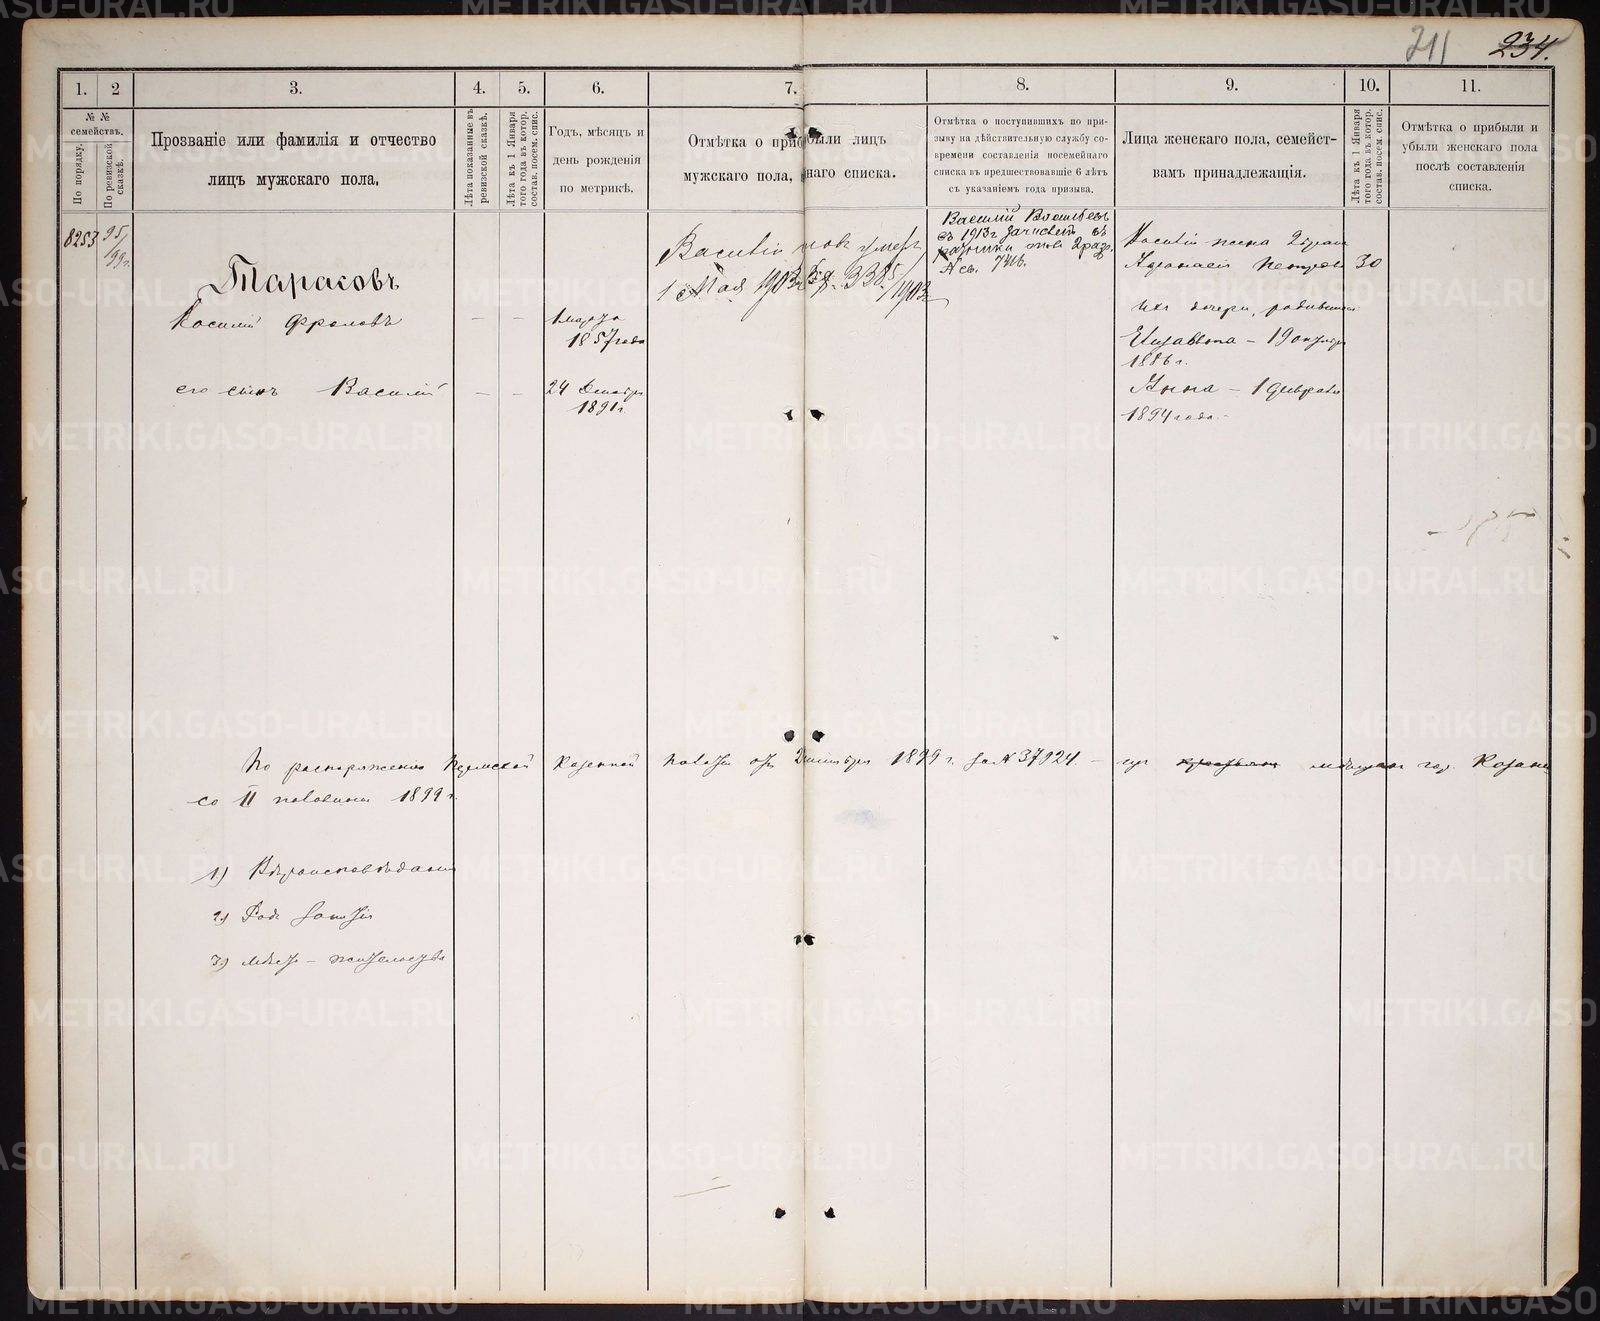 211 234.
1. 2 3. 4. 5. 6. 7. 8. 9. 10. 11.
№ № семействъ.
По порядку.
По ревизской сказкѣ.
Прозваніе или фамилія и отчество
лицъ мужскаго пола.
Лѣта показанные въ ревизской сказкѣ.
Лѣта къ 1 Января того года въ котор. состав. посем. спис.
Годъ, мѣсяцъ и
день рожденія
по метрикѣ.
Отмѣтка о прибыли лицъ
мужскаго пола,
наго списка.
Отмѣтка о поступившихъ по при-
зыву на дѣйствительную службу со-
времени составленія посемейнаго
списка въ предшествовавшіе 6 лѣтъ
съ указаніемъ года призыва.
Лица женскаго пола, семейст-
вамъ принадлежащія.
Лѣта къ 1 Января того года въ котор. состав. посем. спис.
Отмѣтка о прибыли и
убыли женскаго пола
послѣ составленія
списка.
8253 95/99г.
Тарасовъ
Василій Фроловъ
1 марта
1857 года
его сынъ Василій
24 Декабря
1891 г
Василій умеръ
1 Мая 1903г. 3385/1903
Василій Васильевъ
въ 1913г зачисленъ въ
ратники опол. 2 разр.
Василія жена
Петрова 30
ихъ дочери, родившіяся
Елизавета - 19 октября
1886 г.
Анна - 1 Февраля
1894 года -
По распоряженію Пермской Казенной Палаты отъ Декабря 1899 г. за № 37924 - изъ мѣщанъ гор. Казани
со II половины 1899 г.
1) Вѣроисповѣданіе
2) Родъ занятія
3) Мѣсто-жительство
METRIKI.GASO-URAL.RU